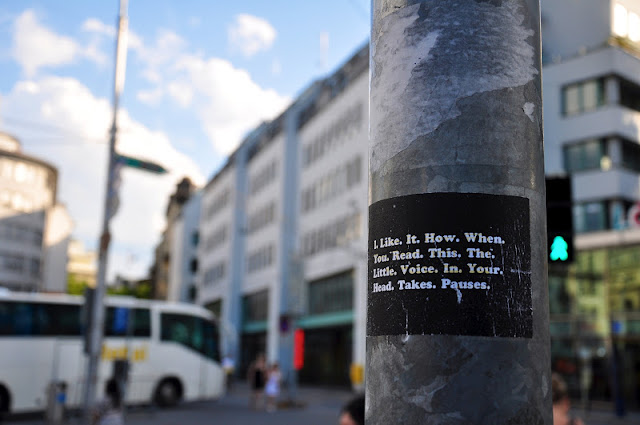 I. Like. It. How. When.
You. Read. This. The.
Little. Voice. In. Your.
Head. Takes. Pauses.